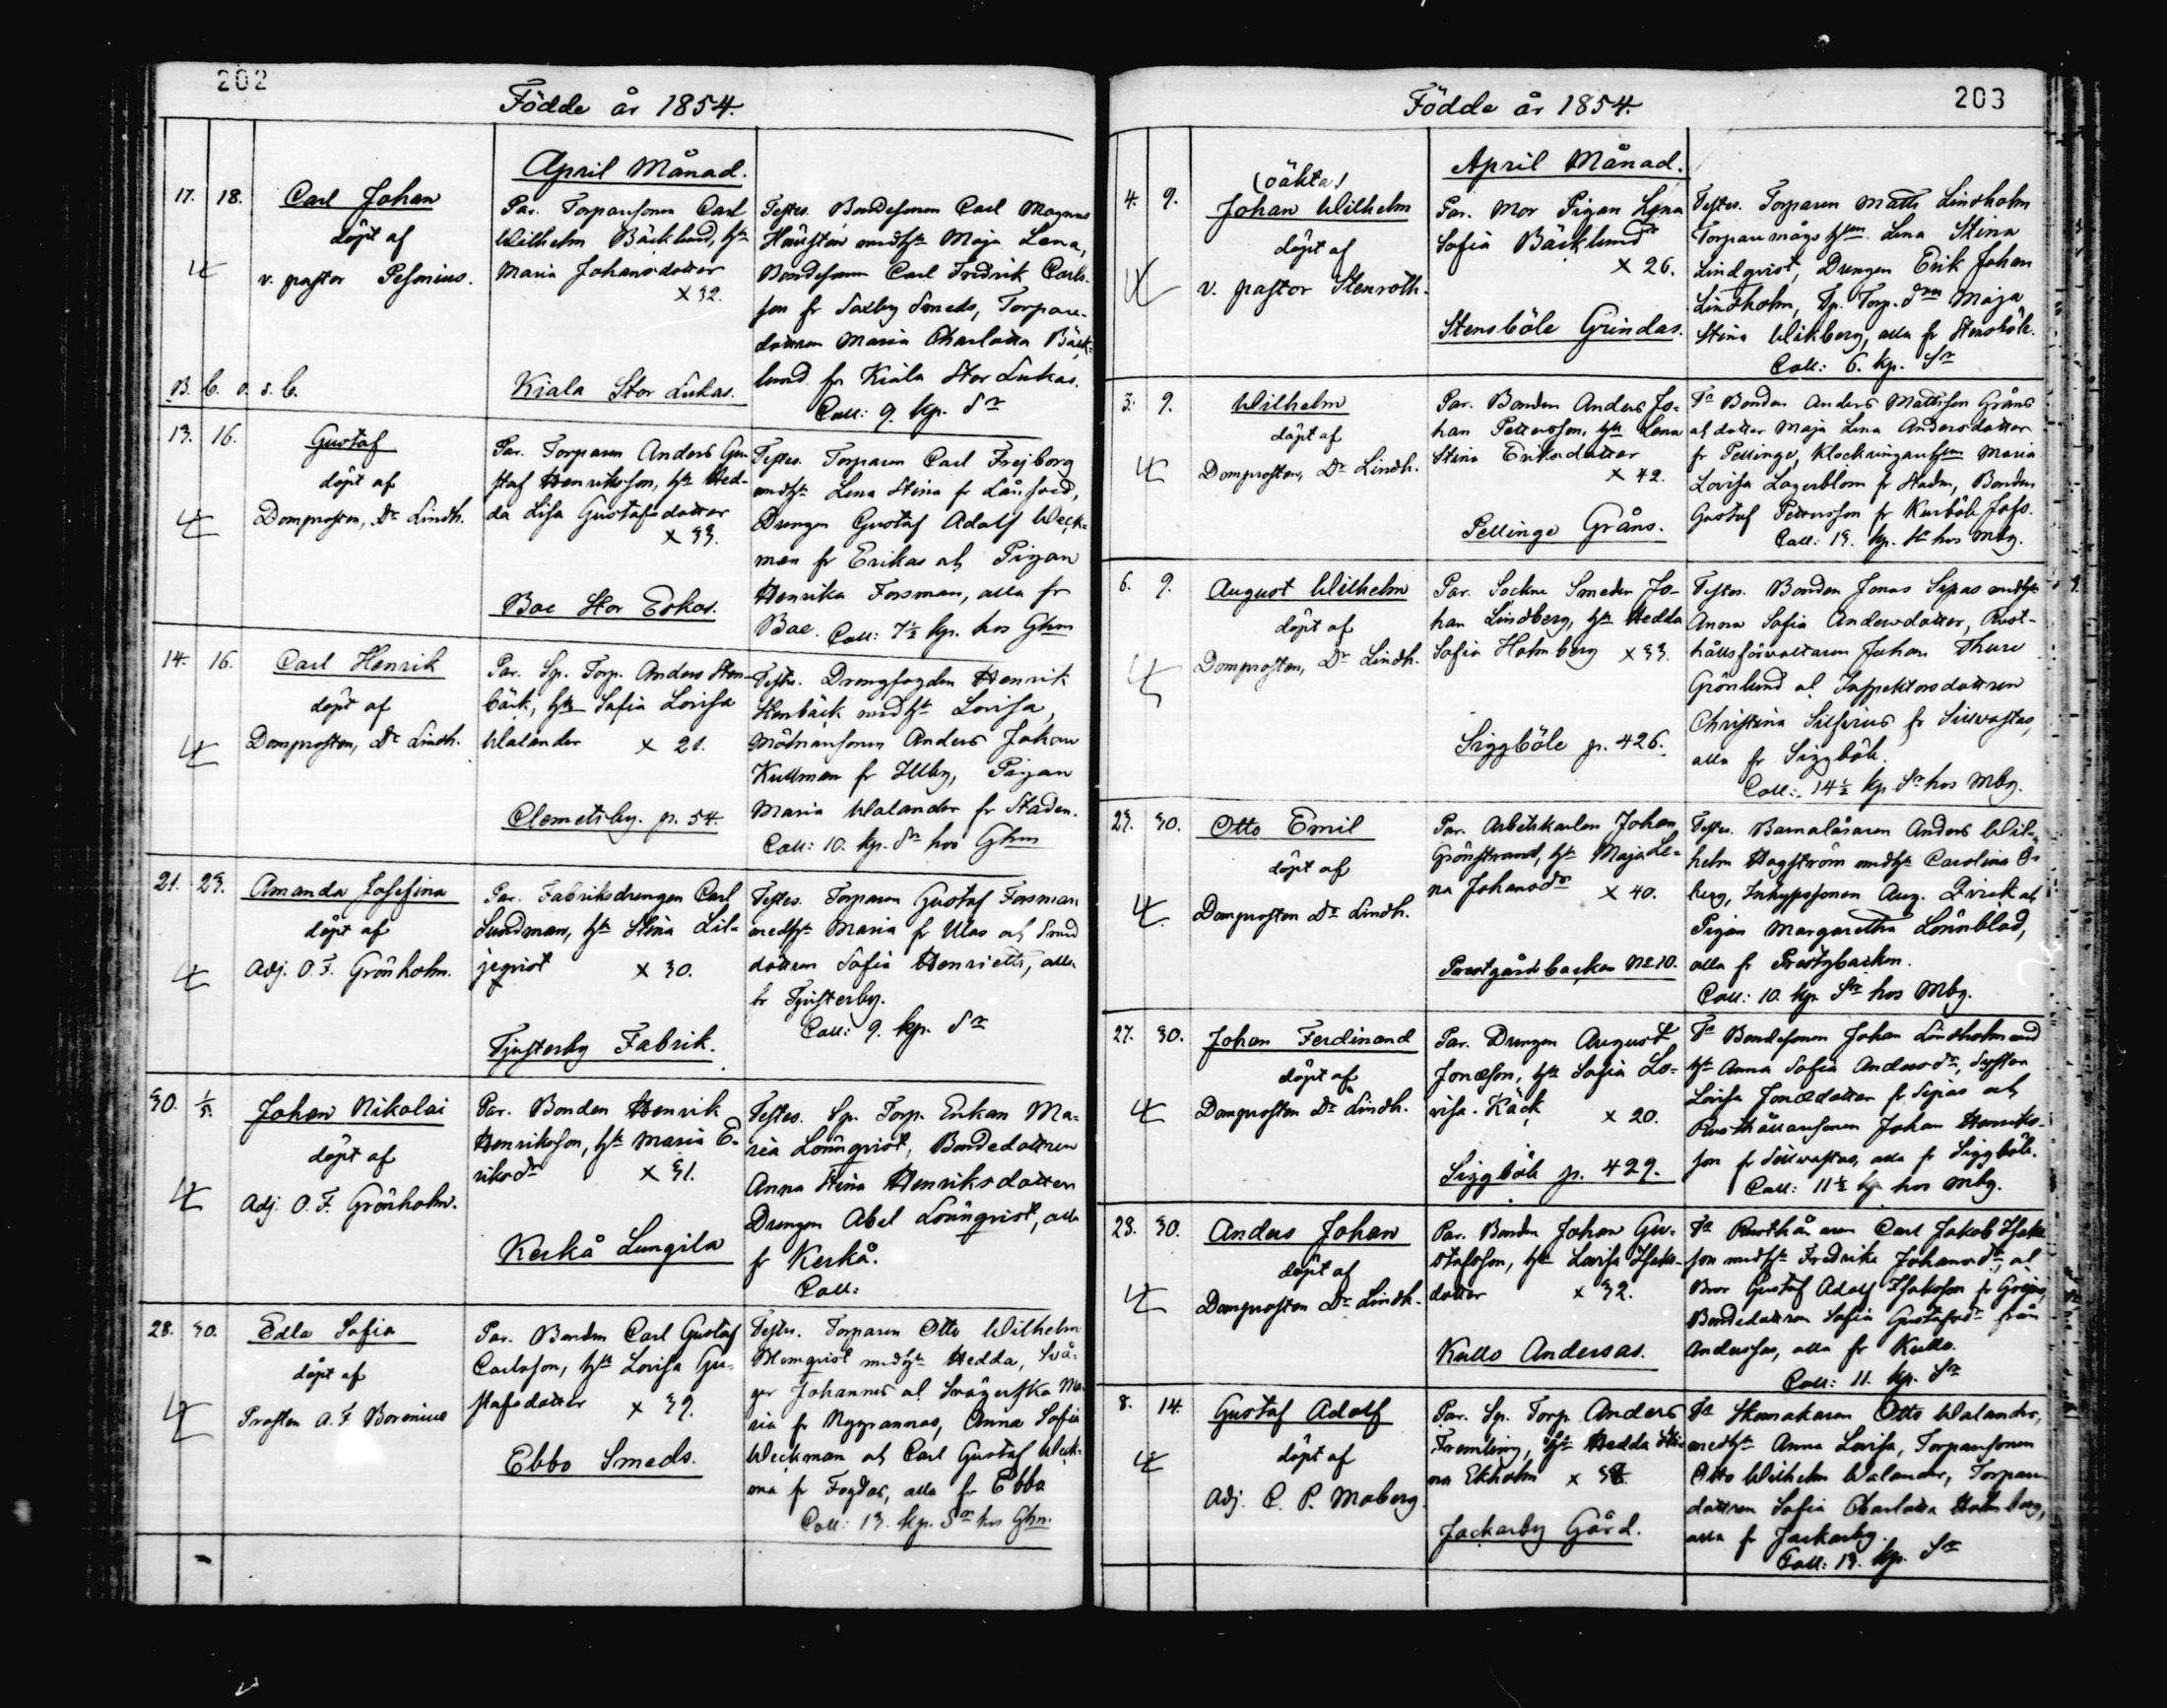 202
Födde år 1854.
April Månad.
17. 18. Carl Johan
döpt af
v. pastor Pesonius.
B. C. o. s. C.
Par. Torparsonen Carl
Wilhelm Bäcklund, hst
Maria Johansdotter
x 32.
Kiala Stor Lukas.
Testes. Bondesonen Carl Magnus
medhst Maja Lena,
Bondesonen Carl Fredrik Carls-
son fr Saxby Smeds, Torpare-
dottren Maria Charlotta Bäck-
lund fr Kiala Stor Lukas.
Coll: 9. kp. Sr
13. 16. Gustaf
döpt af
Domprosten, Dr Lindh.
Par. Torparen Anders Gu-
staf Henriksson, hst Hed-
da Lisa Gustafsdotter
x 33.
Boe Stor Eskas.
Testes. Torparen Carl Frejborg
medhst Lena Stina fr
Drengen Gustaf Adolf Weck-
man fr Erikas och Pigan
Henrika Forsman, alla fr
Boe. Coll: 7½ kp. hos Ghm
14. 16. Carl Henrik
döpt af
Domprosten, Dr Lindh.
Par. Sp. Torp. Anders Sten-
bäck, hst Sofia Lovisa
Walander x 21.
Clemetsby. p. 54.
Testes. Drengfogden Henrik
Stenbäck medhst Lovisa,
Anders Johan
Kullman fr Illby, Pigan
Maria Walander fr Staden.
Coll: 10. kp. Sr hos Ghm
21. 23. Amanda Josefina
döpt af
Adj. O. F. Grönholm.
Par. Fabriksdrengen Carl
Sundman, hst Stina Lil-
jeqvist x 30.
Tjusterby Fabrik.
Testes. Torparen Gustaf Forsman
medhst Maria fr Ulas och Smed
dottren Sofia Henriette, alla
fr Tjusterby.
Coll: 9. kp. Sr
30. 1/5. Johan Nikolai
döpt af
Adj. O. F. Grönholm.
Par. Bonden Henrik
Henriksson, hst Maria E-
riksdr x 31.
Kerkå Lungila
Testes. Sp. Torp. Enkan Ma-
ria Lönnqvist, Bondedottren
Anna Stina Henriksdotter
Drengen Abel Lönnqvist, alla
fr Kerkå.
Coll:
28. 30. Edla Sofia
döpt af
Prosten A. F. Borenius
Par. Bonden Carl Gustaf
Carlsson, hst Lovisa Gu-
stafsdotter x 39.
Ebbo Smeds.
Testes. Torparen Otto Wilhelm
Blomqvist medhst Hedda, Svå-
ger Johannes och Svägerska Ma-
ria fr Nygrannas, Anna Sofia
Weckman och Carl Gustaf Weck-
man fr Fogdas, alla fr Ebbo
Coll: 13. kp. Sr hos Ghm.
203
Födde år 1854.
April Månad.
(oäkta)
4. 9. Johan Wilhelm
döpt af
v. pastor Stenroth.
Par. Mor Pigan Lena
Sofia Bäcklund
x 26.
Stensböle Grindas.
Testes. Torparen Matts Lindholm
Torparemågs hstru Lena Stina
Lindqvist, Drengen Erik Johan
Lindholm, Sp. Torp. dren Maja
Stina Wikberg, alla fr Stensböle.
Coll: 6. kp. Sr
3. 9. Wilhelm
döpt af
Domprosten, Dr Lindh.
Par. Bonden Anders Jo-
han Pettersson, hst Lena
Stina Eriksdotter
x 42.
Pellinge Gråns.
Ts Bonden Anders Mattsson Gråns
och dotter Maja Lena Andersdotter
fr Pellinge, Klockringarehstrun Maria
Lovisa Lagerblom fr Staden, Bonden
Gustaf Pettersson fr Kurböle Jofs.
Coll: 13. kp. Sr hos Mbg.
6. 9. August Wilhelm
döpt af
Domprosten, Dr Lindh.
Par. Sockne Smeden Jo-
han Lindberg, hst Hedda
Sofia Holmberg x 33.
Siggböle p. 426.
Testes. Bonden Jonas Sipas medhst
Anna Sofia Andersdotter, Rust-
hållsförvaltaren Johan Thure
Grönlund och Inspektorsdottren
Christina Silfverius fr Sillvastas,
alla fr Siggböle.
Coll: 14½ kp. Sr hos Mbg.
23. 30. Otto Emil
döpt af
Domprosten Dr Lindh.
Par. Arbetskarlen Johan
Grönstrand, hst Maja Le-
na Johansdr x 40.
Prestgårdsbacken No 10.
Testes. Barnaläraren Anders Wil-
helm Hagström medhst Carolina Ö-
berg, Inhysessonen Aug. Qvick och
Pigan Margaretha Lönnblad,
alla fr Prestgbacken.
Coll: 10. kp. Sr hos Mbg.
27. 30. Johan Ferdinand
döpt af
Domprosten Dr Lindh.
Par. Drengen August
Jonasson, hst Sofia Lo-
visa Käck x 20.
Siggböle p. 429.
Ts Bondesonen Johan Lindholm med
hst Anna Sofia Andersdr, Systren
Lovisa Jonædotter fr Sipas och
Rusthållaresonen Johan Henriks-
son fr Sillvastas, alla fr Siggböle.
Coll: 11½ kp hos Mbg.
23. 30. Anders Johan
döpt af
Domprosten Dr Lindh.
Par. Bonden Johan Gu-
stafsson, hst Lovisa Isaks-
dotter x 32.
Kullo Andersas.
Ts Rusthållaren Carl Jakob Isaks-
son medhst Fredrika Johansdr, och
Bror Gustaf Adolf Isaksson fr Grejus,
Bondedottren Sofia Gustafsdr från
Anderssas, alla fr Kullo.
Coll: 11. kp. Sr
8. 14. Gustaf Adolf
döpt af
Adj. C. P. Moberg.
Par. Sp. Torp. Anders
Fremling, hst Hedda Sti-
na Ekholm x
Jackarby Gård.
Ts Skomakaren Otto Walander,
medhst Anna Lovisa, Torparesonen
Otto Wilhelm Walander, Torpare
dottren Sofia Charlotta Holmberg,
alla fr Jackarby.
Coll: 13. kp. Sr